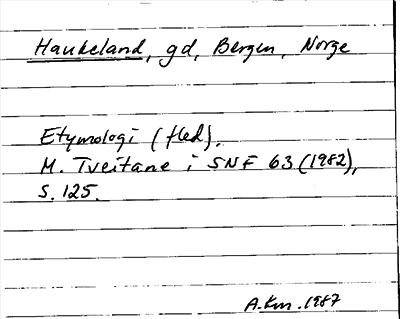 Haukeland, gd, Bergen, Norge
Etymologi (fled).
M. Tveitane i SNF 63 (1982),
S. 125.
A.Km. 1987